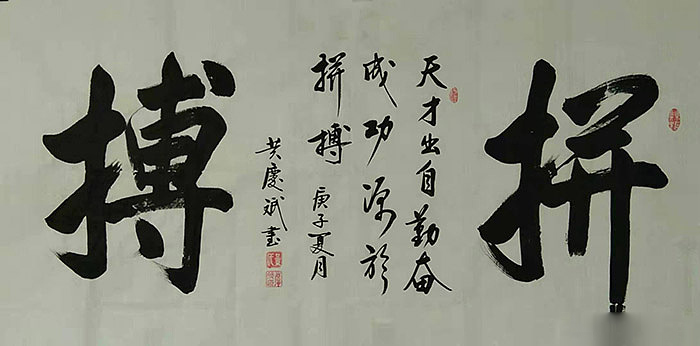 拼
天才出自勤奋
成功源於
拼搏 庚子夏月
黄慶斌書
搏